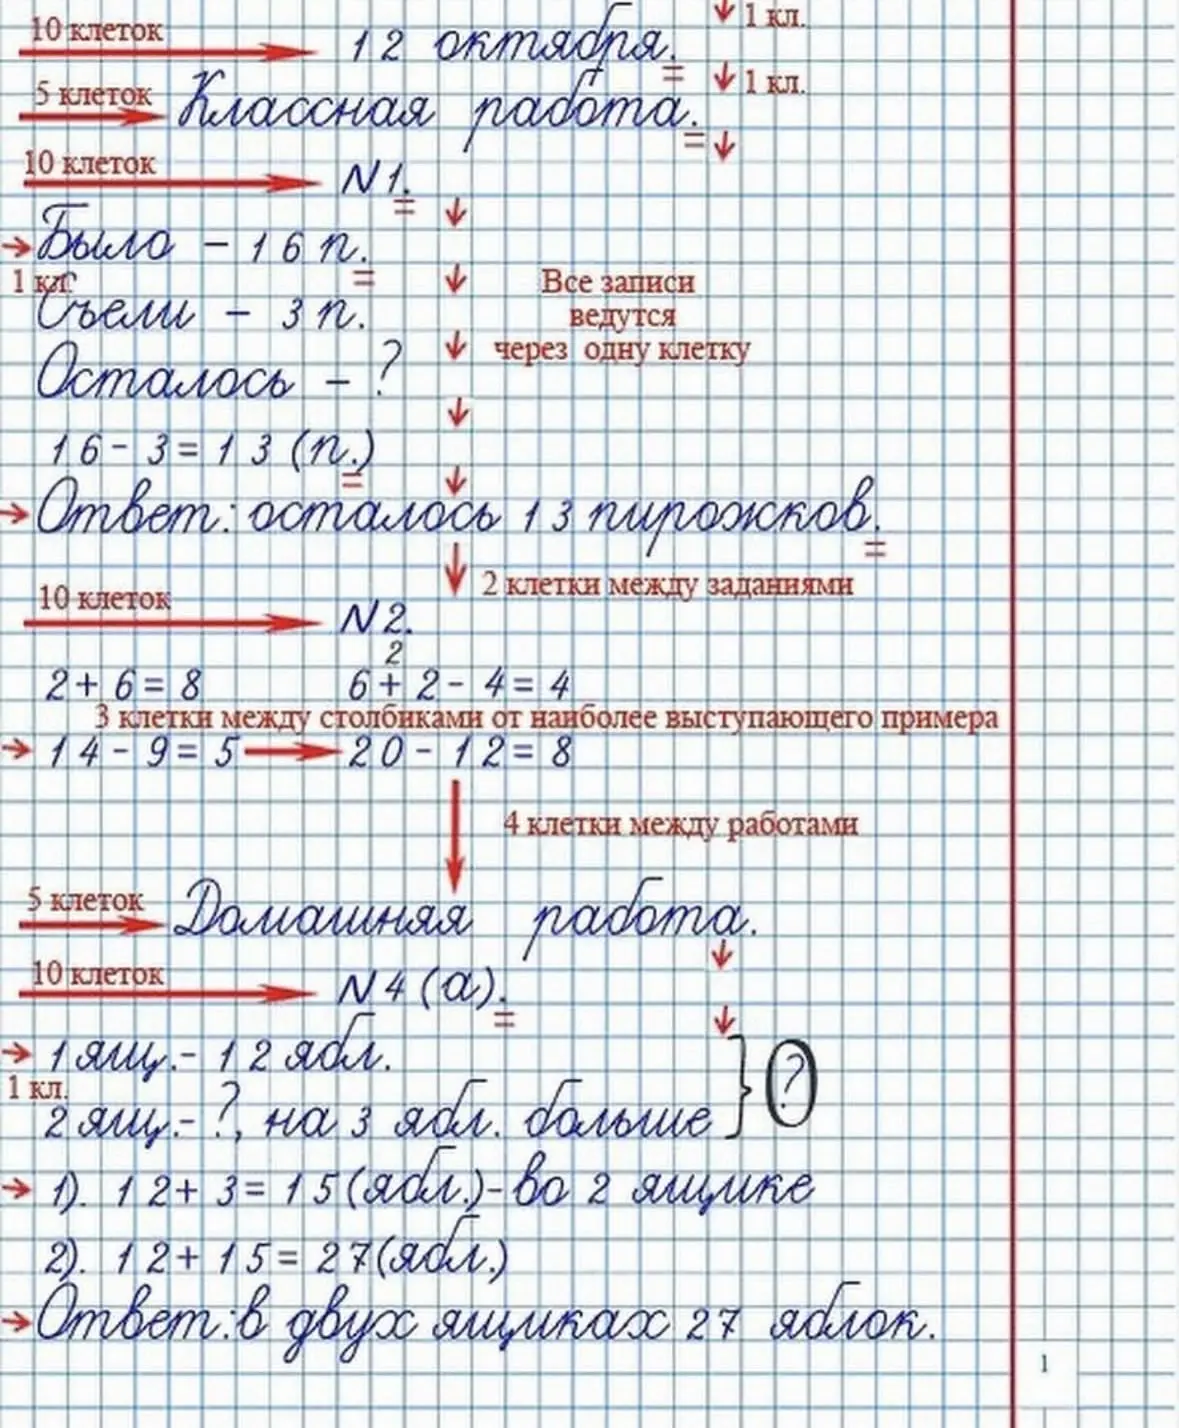 1 кл.
10 клеток 12 октября.
5 клеток Классная работа. 1 кл.
10 клеток N 1.
Было - 16 п.
1 кл. Все записи
Съели - 3 п. ведутся
через одну клетку
Осталось - ?
16 - 3 = 13 (п.)
Ответ: осталось 13 пирожков.
2 клетки между заданиями
10 клеток N 2.
2
2 + 6 = 8 6 + 2 - 4 = 4
3 клетки между столбиками от наиболее выступающего примера
14 - 9 = 5 20 - 12 = 8
4 клетки между работами
5 клеток Домашняя работа.
10 клеток N 4 (а).
1 ящ. - 12 ябл.
1 кл. } ?
2 ящ. - ?, на 3 ябл. больше
1). 12 + 3 = 15 (ябл.) - во 2 ящике
2). 12 + 15 = 27 (ябл.)
Ответ: в двух ящиках 27 яблок.
1